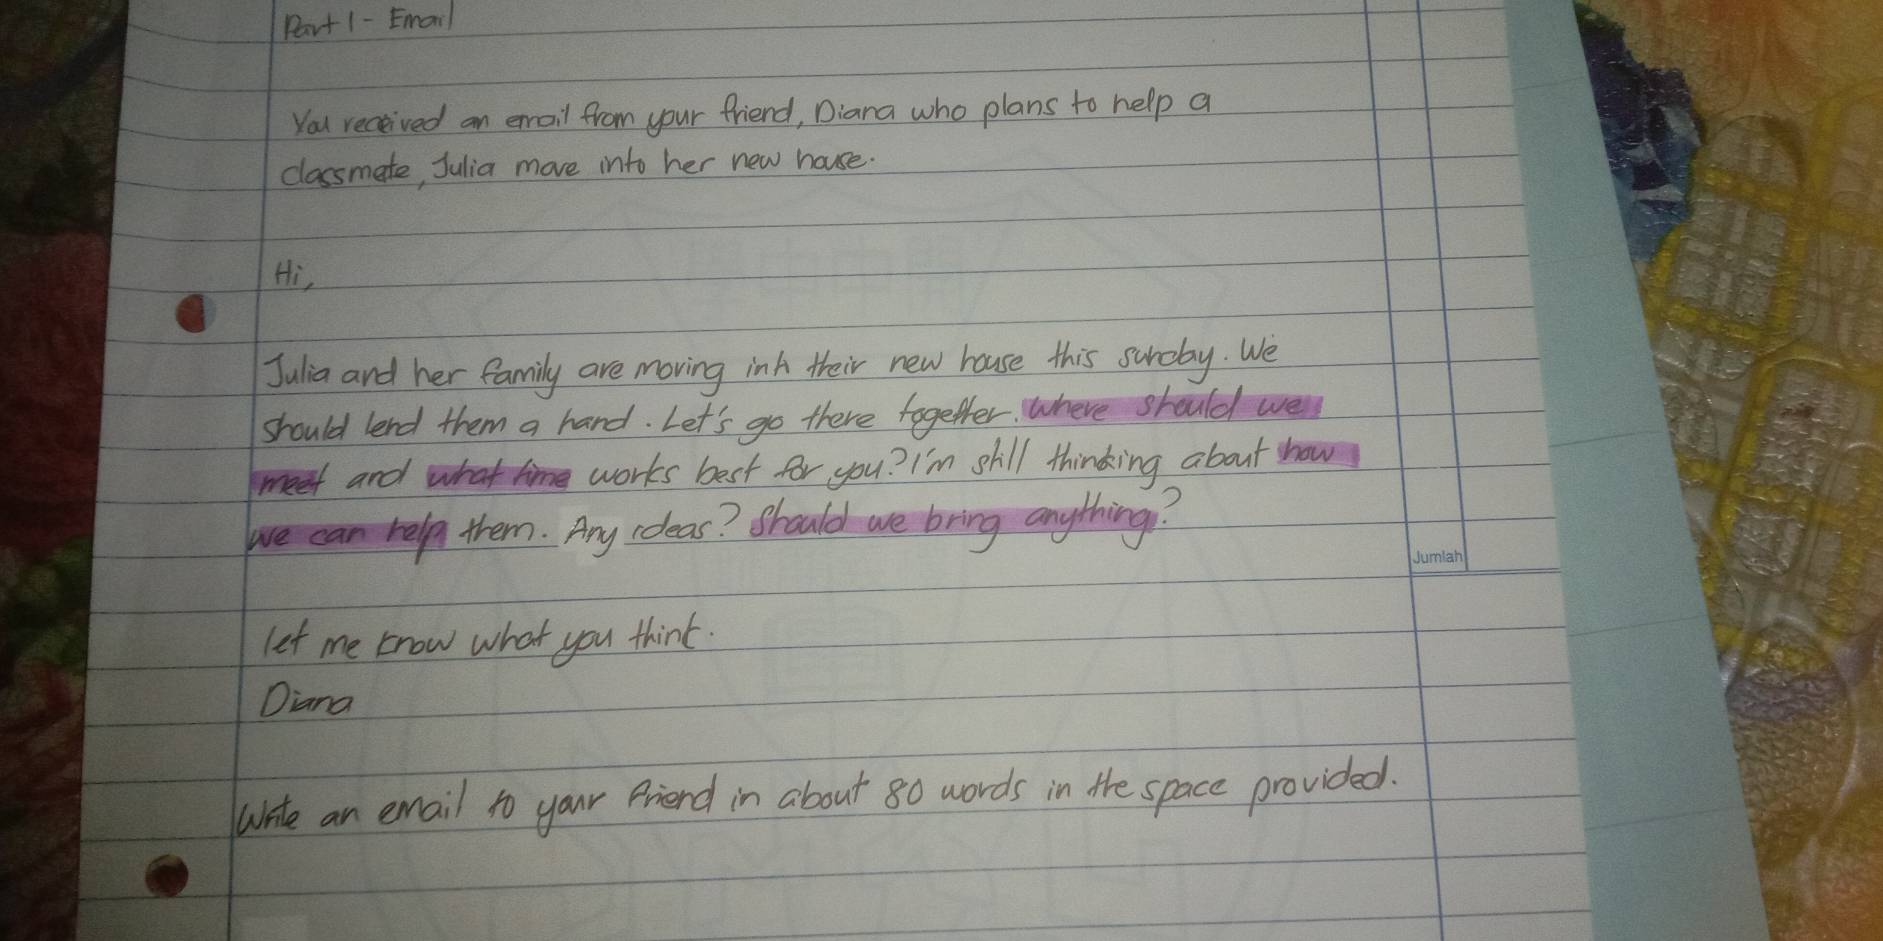 Part 1 - Email
You received an email from your friend, Diana who plans to help a
classmate, Julia move into her new house.
Hi,
Julia and her family are moving into their new house this sunday. We
should lend them a hand. Let's go there together. Where should we
meet and what time works best for you? I'm still thinking about how
we can help them. Any ideas? Should we bring anything?
Jumlah
let me know what you think.
Diana
Write an email to your friend in about 80 words in the space provided.